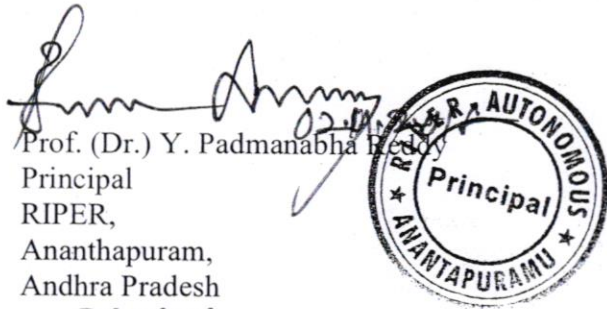 Prof. (Dr.) Y. Padmanabha Reddy
Principal
RIPER,
Ananthapuram,
Andhra Pradesh
RIPER AUTONOMOUS
Principal
★ ANANTAPURAMU ★